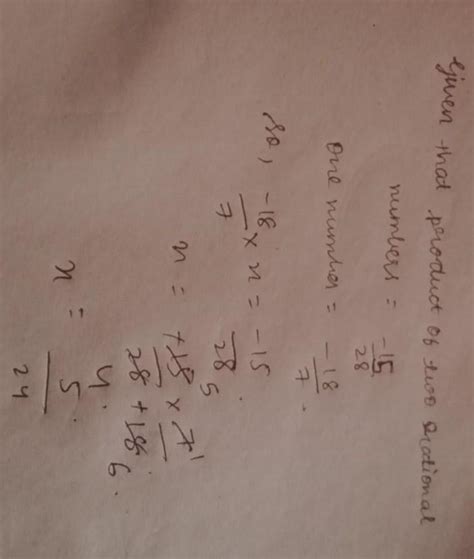 Given that product of two rational
numbers = -15/28
One number = -18/7.
so, -18/7 × x = -15/28.
x = +15 5/28 4 × 7 1/+18 6.
x = 5/24.